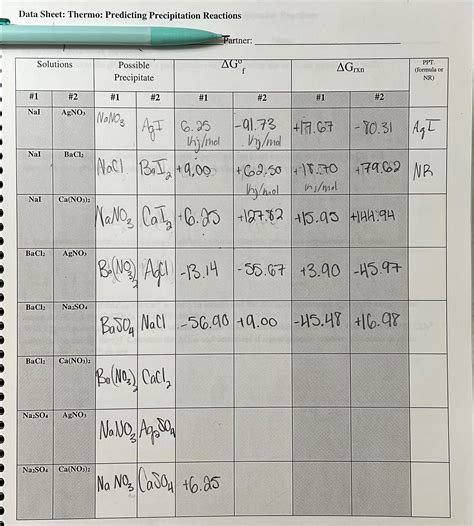 Data Sheet: Thermo: Predicting Precipitation Reactions
Partner:
Solutions Possible Precipitate ΔG°f ΔGrxn PPT. (formula or NR)
#1 #2 #1 #2 #1 #2 #1 #2
NaI AgNO₃ NaNO₃ AgI 6.25 kJ/mol -91.73 kJ/mol +17.67 -80.31 AgI
NaI BaCl₂ NaCl BaI₂ +9.00 +62.50 kJ/mol +18.70 kJ/mol +79.62 NR
NaI Ca(NO₃)₂ NaNO₃ CaI₂ +6.25 +127.82 +15.95 +144.94
BaCl₂ AgNO₃ Ba(NO₃)₂ AgCl -13.14 -55.67 +3.90 -45.97
BaCl₂ Na₂SO₄ BaSO₄ NaCl -56.90 +9.00 -45.48 +16.98
BaCl₂ Ca(NO₃)₂ Ba(NO₃)₂ CaCl₂
Na₂SO₄ AgNO₃ NaNO₃ Ag₂SO₄
Na₂SO₄ Ca(NO₃)₂ NaNO₃ CaSO₄ +6.25